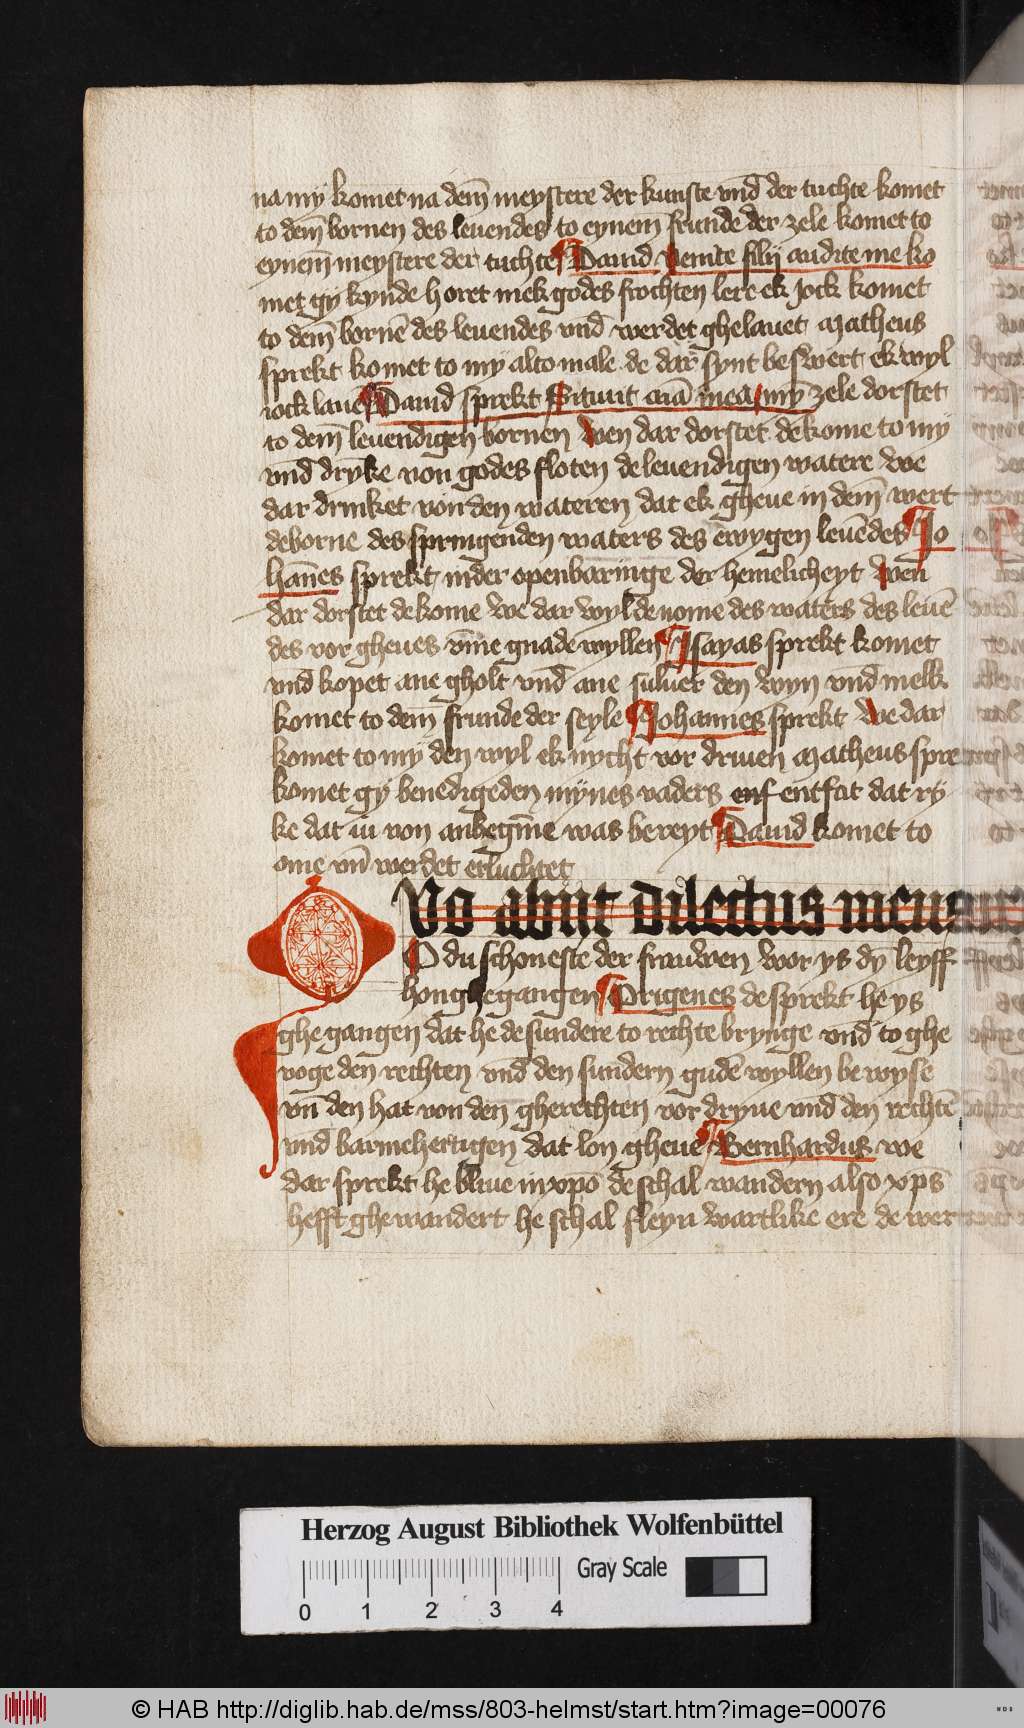 na my komet na dem̄ meystere der kunste vnd̄ der tuchte komet
to dem̄ bornen des leuendes to eynem̄ frunde der zele komet to
eynem̄ meystere der tuchte Dauid venite filij audite me ko
met gy kynde horet mek godes frochten lere ek jock komet
to dem̄ bornē des leuendes vnd̄ werdet ghelauet Matheus
sprekt komet to my alto male de dar synt beswert ek wyl
jock lauē Dauid sprekt Sitiuit aīa mea myn̄ zele dorstet
to dem̄ leuendigen bornen wen dar dorstet de kome to my
vnd̄ dryke von godes floten de leuendigen watere we
dar drinket von den wateren dat ek gheue in dem̄ wert
de borne des springenden waters des ewygen leuēdes Jo
han̄es sprekt in der openbaringe der hemelicheyt wen
dar dorstet de kome we dar wyl de nome des waters des leuē
des vor gheues vm̄e gnade wyllen Jsayas sprekt komet
vnd̄ kopet ane gholt vnd̄ ane suluer den wyn vnd̄ melk
komet to dem̄ frunde der seyle Johannes sprekt we dar
komet to my den wyl ek nycht vor driuen Matheus spre
komet gy benedigeden mynes vaders entfat dat ry
ke dat iu von anbegīne was bereyt Dauid komet to
ome vn̄ werdet erluchtet
Quo abijt dilectus meus
O du schoneste der frauwen woor ys dy leyff
hon ghegangen Origenes de sprekt he ys
ghe gangen dat he de sundere to rechte brynge vnd̄ to ghe
voge den rechten vnd̄ den sundern gudē wyllen be wyse
vn̄ den hat von den gherechten vor dryue vnd̄ den rechtē
vnd̄ barmehertigen dat lon gheue Bernhardus we
dar sprekt he bliue in xpō de schal wandern also xp̄s
hefft ghe wandert he schal fleyn wartlike ere de wer
Herzog August Bibliothek Wolfenbüttel
0 1 2 3 4 Gray Scale
© HAB http://diglib.hab.de/mss/803-helmst/start.htm?image=00076